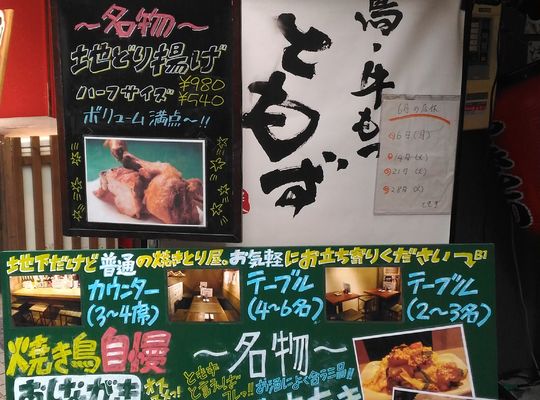 〜名物〜
地どり揚げ
¥980
ハーフサイズ ¥540
ボリューム満点〜!!
鳥・牛もつ
ともず
6月の店休
6日(月)
14日(火)
21日(火)
28日(火)
ともず
地下だけど普通の焼きとり屋。お気軽にお立ち寄りください B1
カウンター
(3〜4席)
テーブル
(4〜6名)
テーブル
(2〜3名)
焼き鳥自慢
おしながき
〜名物〜
ともずと言えばコレっ!!
お酒によく合う三品!!